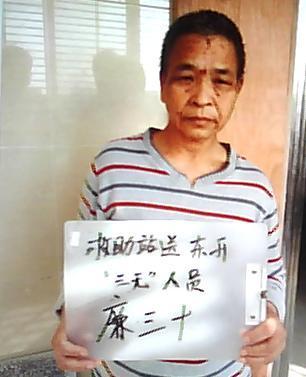 救助站送 东开
"三无"人员
廉三十